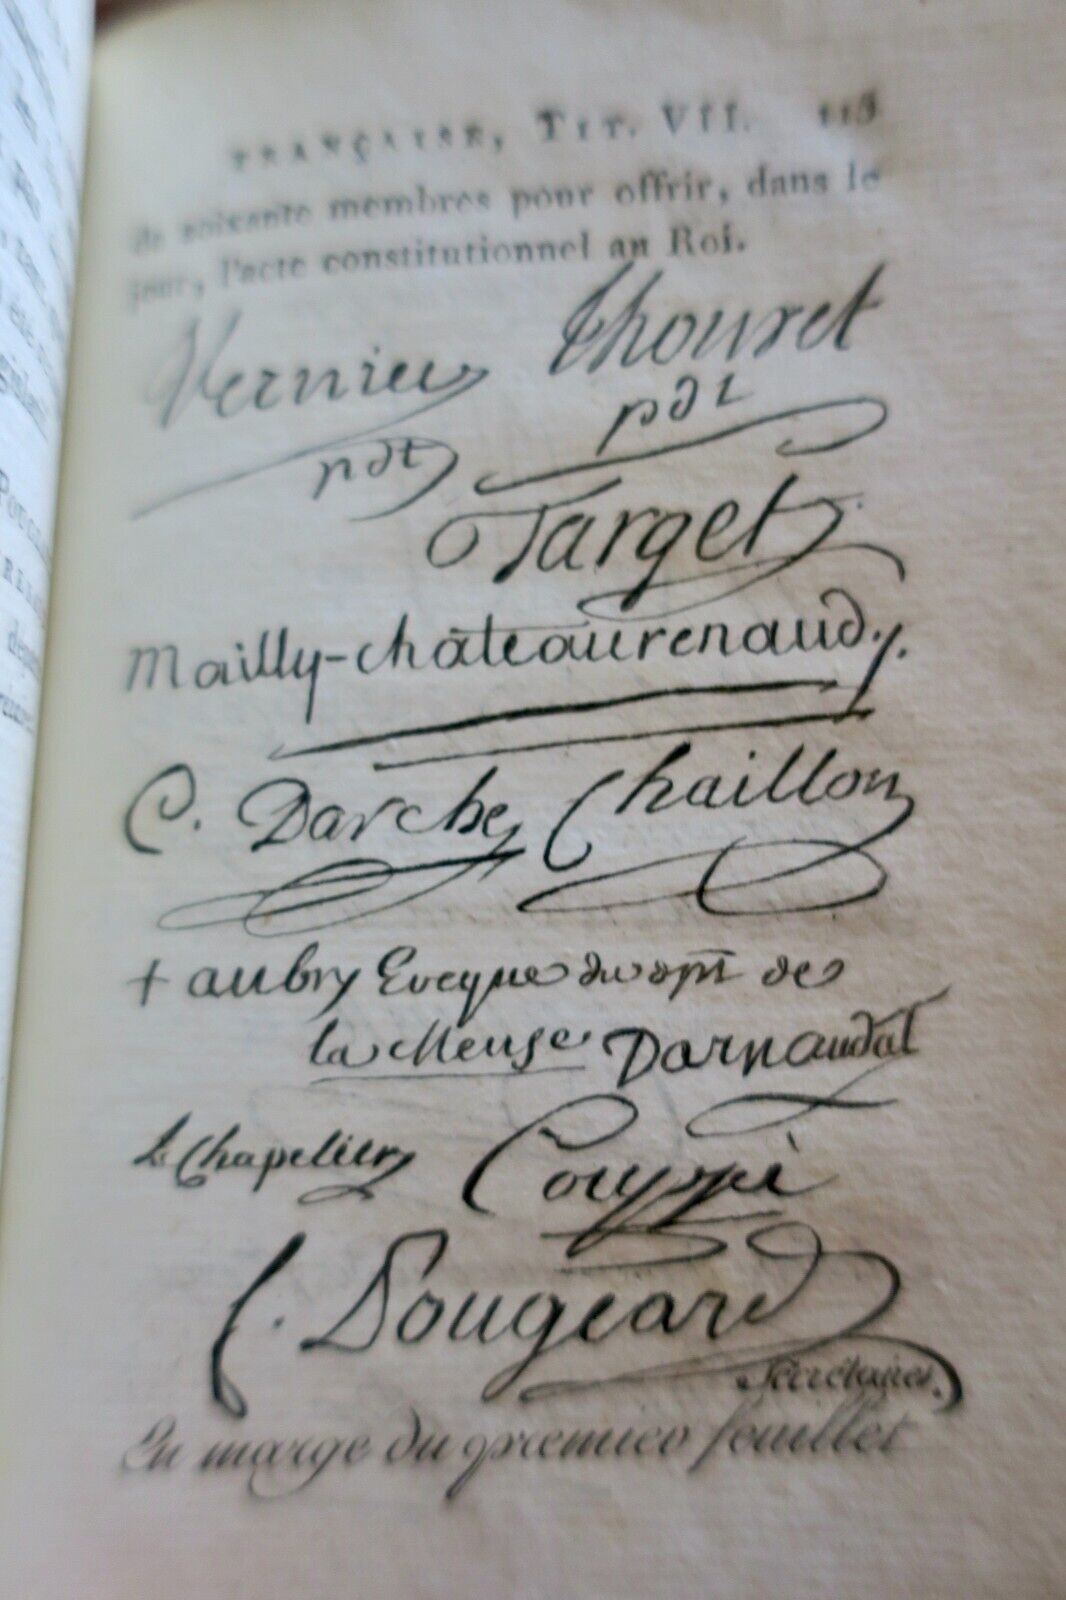 FRANÇAISE, TIT. VII. 113
de soixante membres pour offrir, dans le
jour, l'acte constitutionnel au Roi.
Vernier Thouret
pdt pdt
Target
Mailly-châteaurenaud.
C. Darche Chaillon
+ aubry Eveque du dpt de
la Meuse Darnaudat
Le Chapelier Couppé
C. Dougeard
Secrétaires.
En marge du premier feuillet